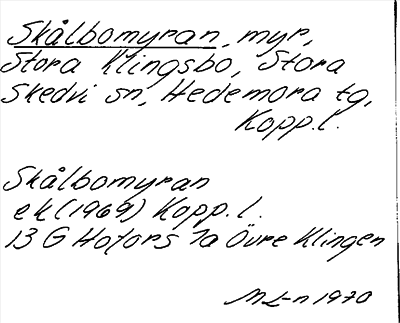 Skålbomyran, myr,
Stora Klingsbo, Stora
Skedvi sn, Hedemora tg,
Kopp.l.
Skålbomyran
ek (1969) Kopp.l.
13 G Hofors 7a Övre Klingen
ML-n 1970